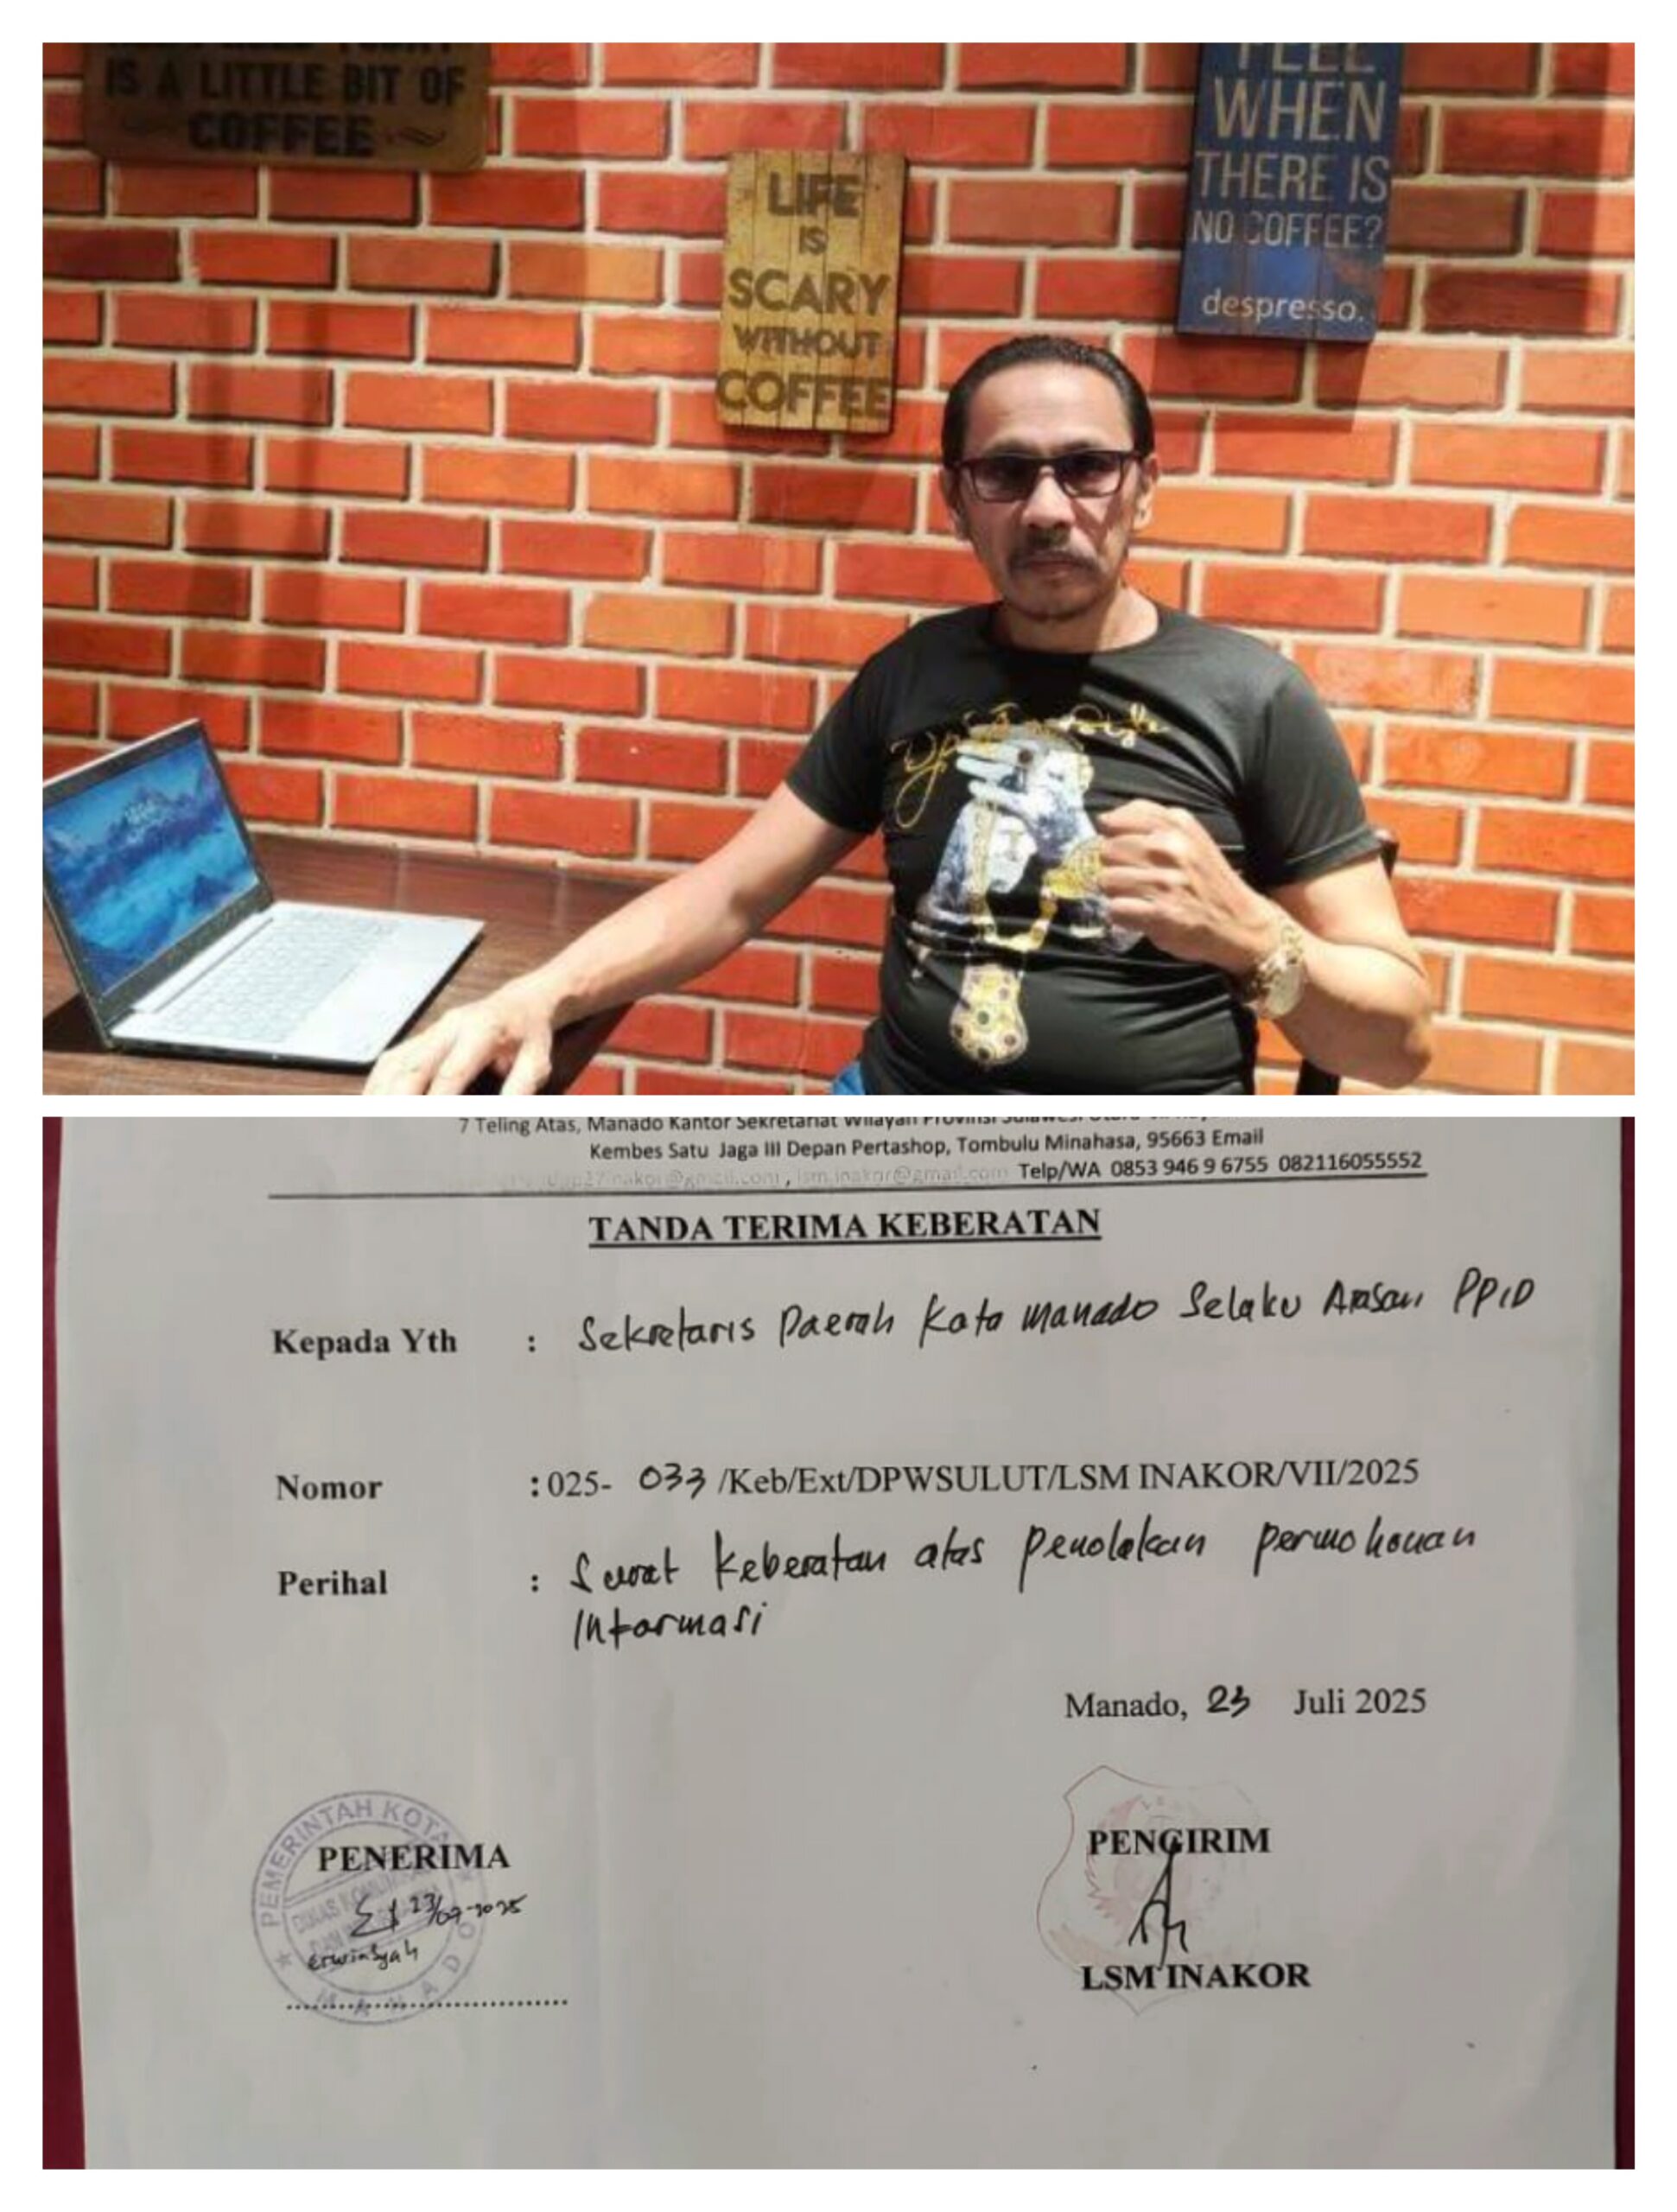 IS A LITTLE BIT OF
COFFEE
LIFE
IS
SCARY
WITHOUT
COFFEE
FEEL
WHEN
THERE IS
NO COFFEE?
despresso.
7 Teling Atas, Manado Kantor Sekretariat Wilayah Provinsi Sulawesi Utara
Kembes Satu Jaga III Depan Pertashop, Tombulu Minahasa, 95663 Email
lsm.inakor@gmail.com Telp/WA 0853 946 9 6755 082116055552
TANDA TERIMA KEBERATAN
Kepada Yth : Sekretaris Daerah Kota Manado Selaku Atasan PPID
Nomor : 025- 033 /Keb/Ext/DPWSULUT/LSM INAKOR/VII/2025
Perihal : Surat Keberatan atas penolakan permohonan
Informasi
Manado, 23 Juli 2025
PEMERINTAH KOTA
MANADO
PENERIMA
23/07-2025
erwinsyah
PENGIRIM
LSM INAKOR